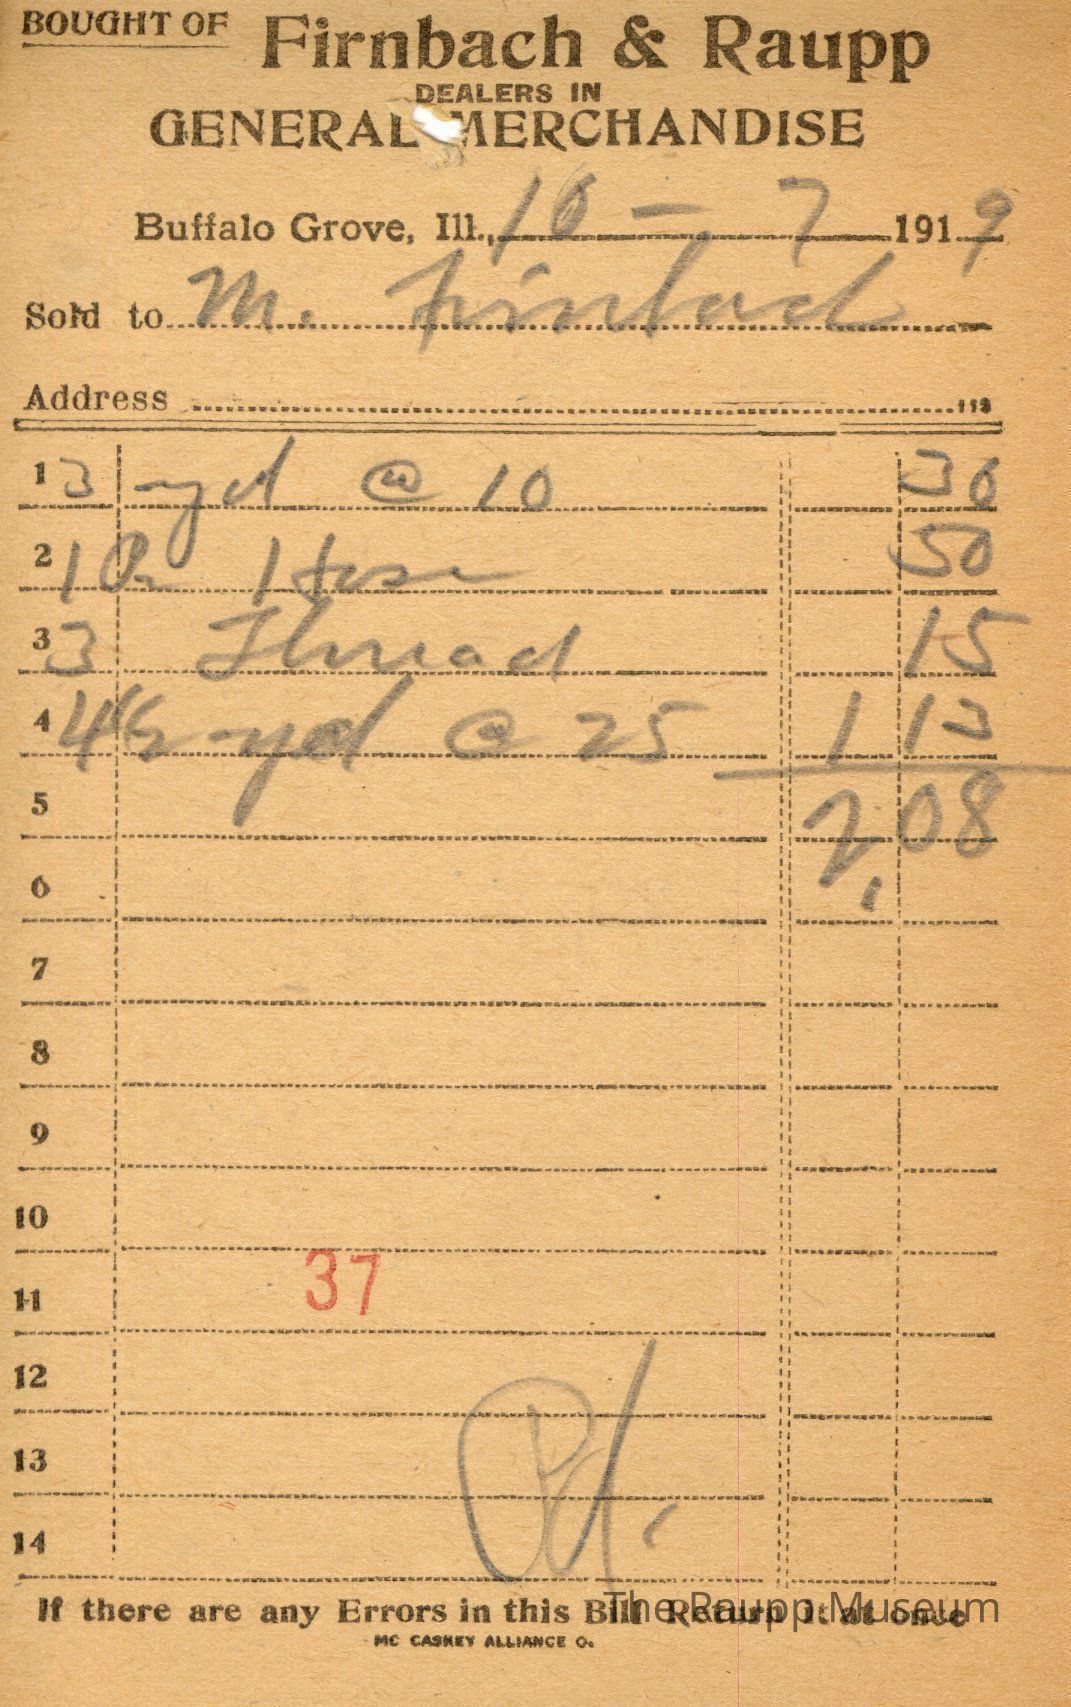 BOUGHT OF Firnbach & Raupp
DEALERS IN
GENERAL MERCHANDISE
Buffalo Grove, Ill., 10 - 7 1919
Sold to M. Firnbach
Address
113
1 3 yd @ 10 30
2 1 Pr Hose 50
3 3 Thread 15
4 4½ yd @ 25 1 13
5 2.08
6
7
8
9
10
37
11
12
13
Pd.
14
If there are any Errors in this Bill Return it at once
The Raupp Museum
MC CASKEY ALLIANCE O.